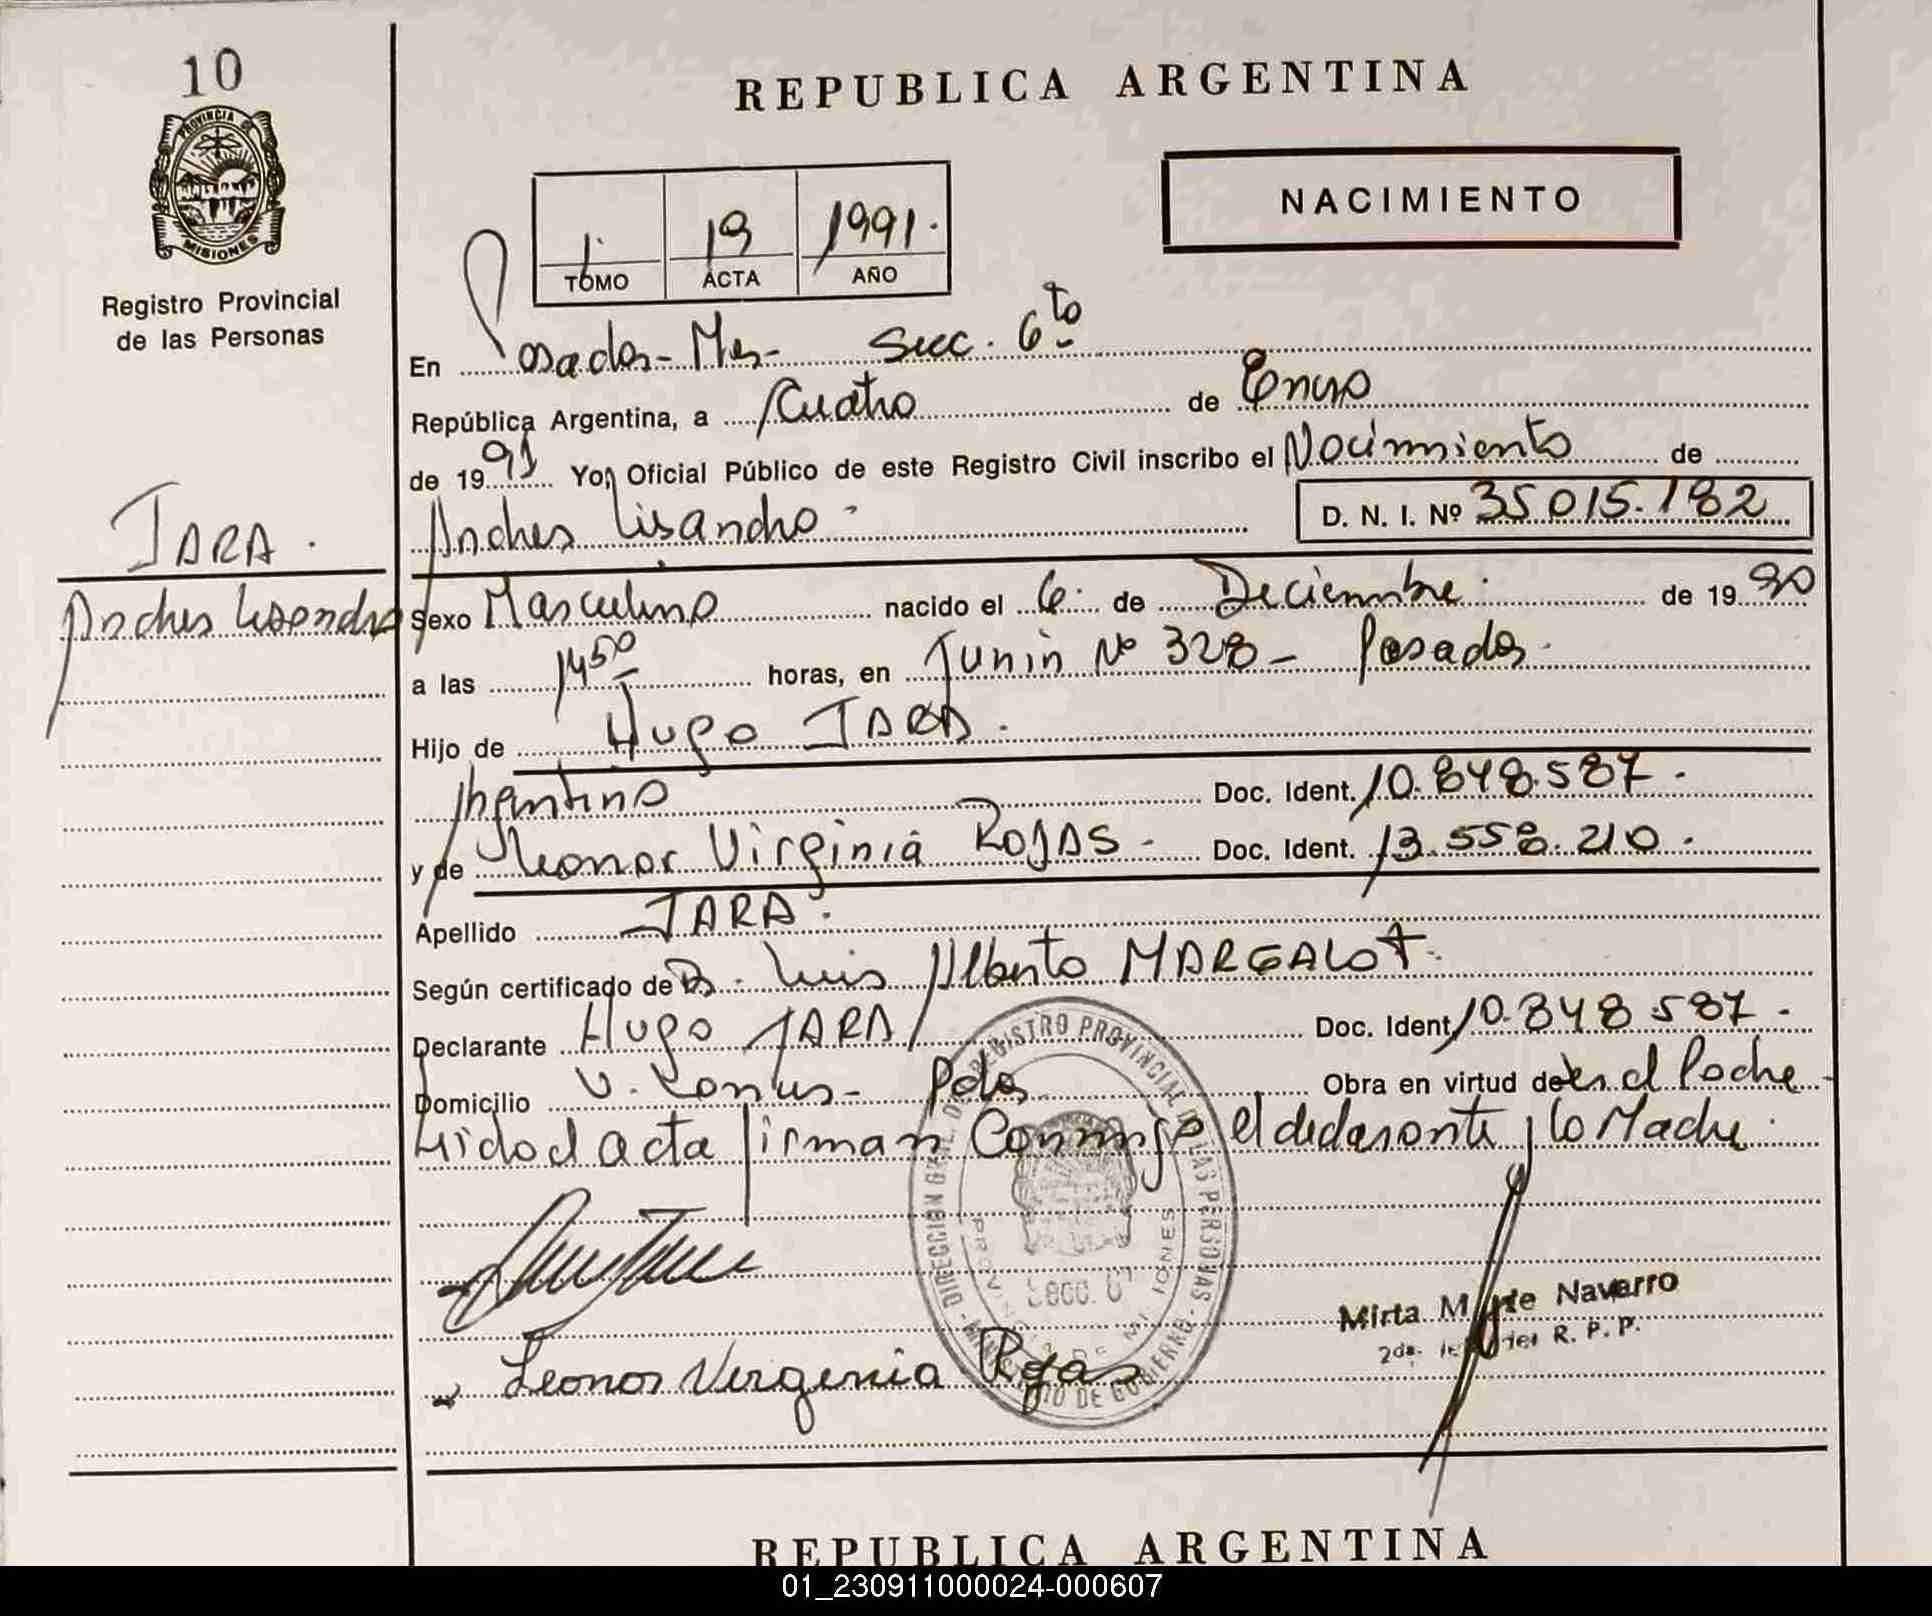 10
PROVINCIA DE
MISIONES
Registro Provincial
de las Personas
REPUBLICA ARGENTINA
NACIMIENTO
1. 19 1991.
TOMO ACTA AÑO
En Posadas - Mes - Secc. 6to
República Argentina, a Cuatro de Enero
de 1991 Yo, Oficial Público de este Registro Civil inscribo el Nacimiento de
Andres Lisandro - D. N. I. Nº 35.015.182
JARA.
Andres Lisandro
Sexo Masculino nacido el 6 de Deciembre de 1990
a las 1450 horas, en Junin Nº 328 - Posadas.
Hijo de Hugo JARA.
Argentino Doc. Ident. 10.848.587.
y de Leonor Virginia ROJAS - Doc. Ident. 13.558.210.
Apellido JARA.
Según certificado de Dr. Luis Alberto MARGALOT.
Declarante Hugo JARA Doc. Ident. 10.848.587.
Domicilio Pdas Obra en virtud de es el Padre
Leida el acta firman Conmigo el declarante y la Madre.
DIRECCION GRAL. DEL REGISTRO PROVINCIAL DE LAS PERSONAS - MINISTERIO DE GOBIERNO -
PROVINCIA DE MISIONES
Secc. 6ª
Mirta M. de Navarro
2da. R. P. P.
Leonor Vergenia Rojas
REPUBLICA ARGENTINA
01_230911000024-000607